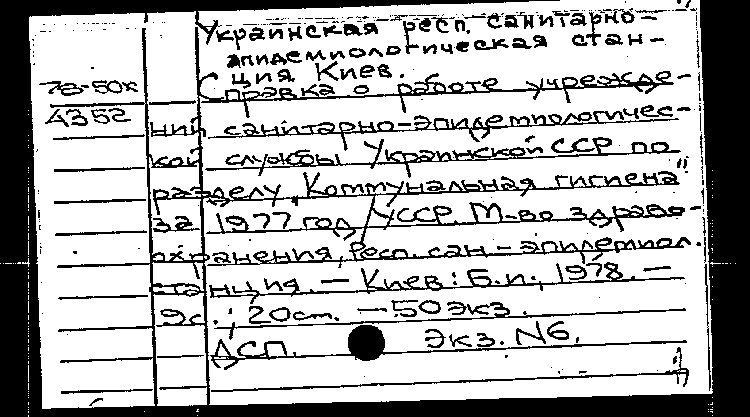 Украинская респ. санитарно-
эпидемиологическая стан-
ция Киев.
78-50к
Справка о работе учрежде-
4352
ний санитарно-эпидемиологичес-
кой службы Украинской ССР по
разделу „Коммунальная гигиена"
за 1977 год / УССР. М-во здраво-
охранения, Респ. сан-эпидемиол.
станция. — Киев: Б.и., 1978. —
9с.; 20см. — 50 экз.
ДСП. Экз. N6.